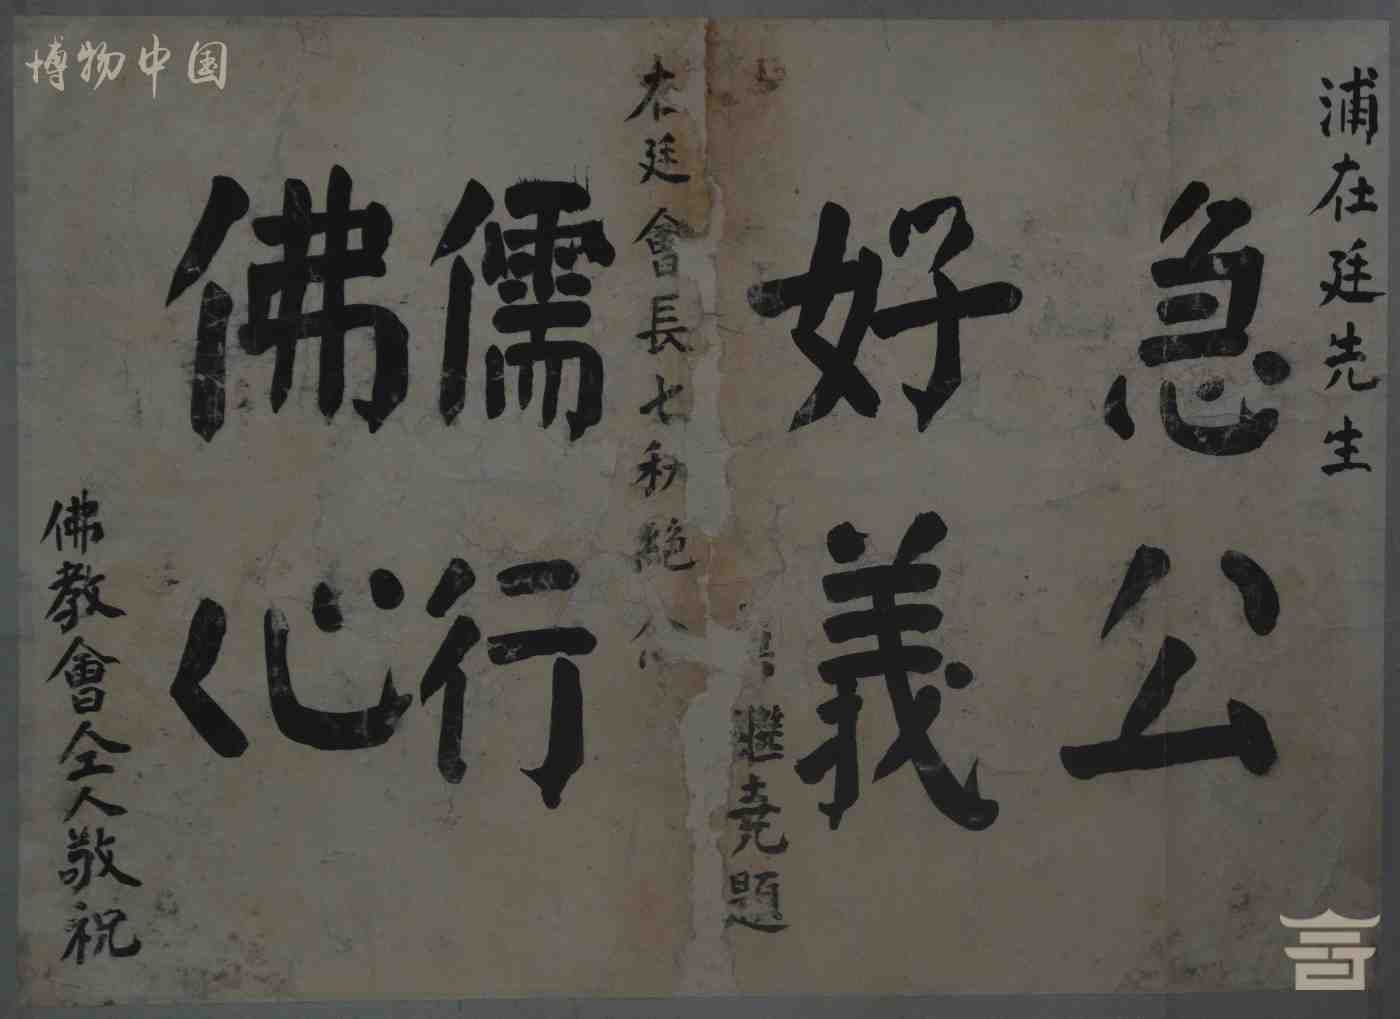 博物中国
浦在廷先生
急公
好義
繼堯題
在廷會長七秩
儒行
佛心
佛教會仝人敬祝